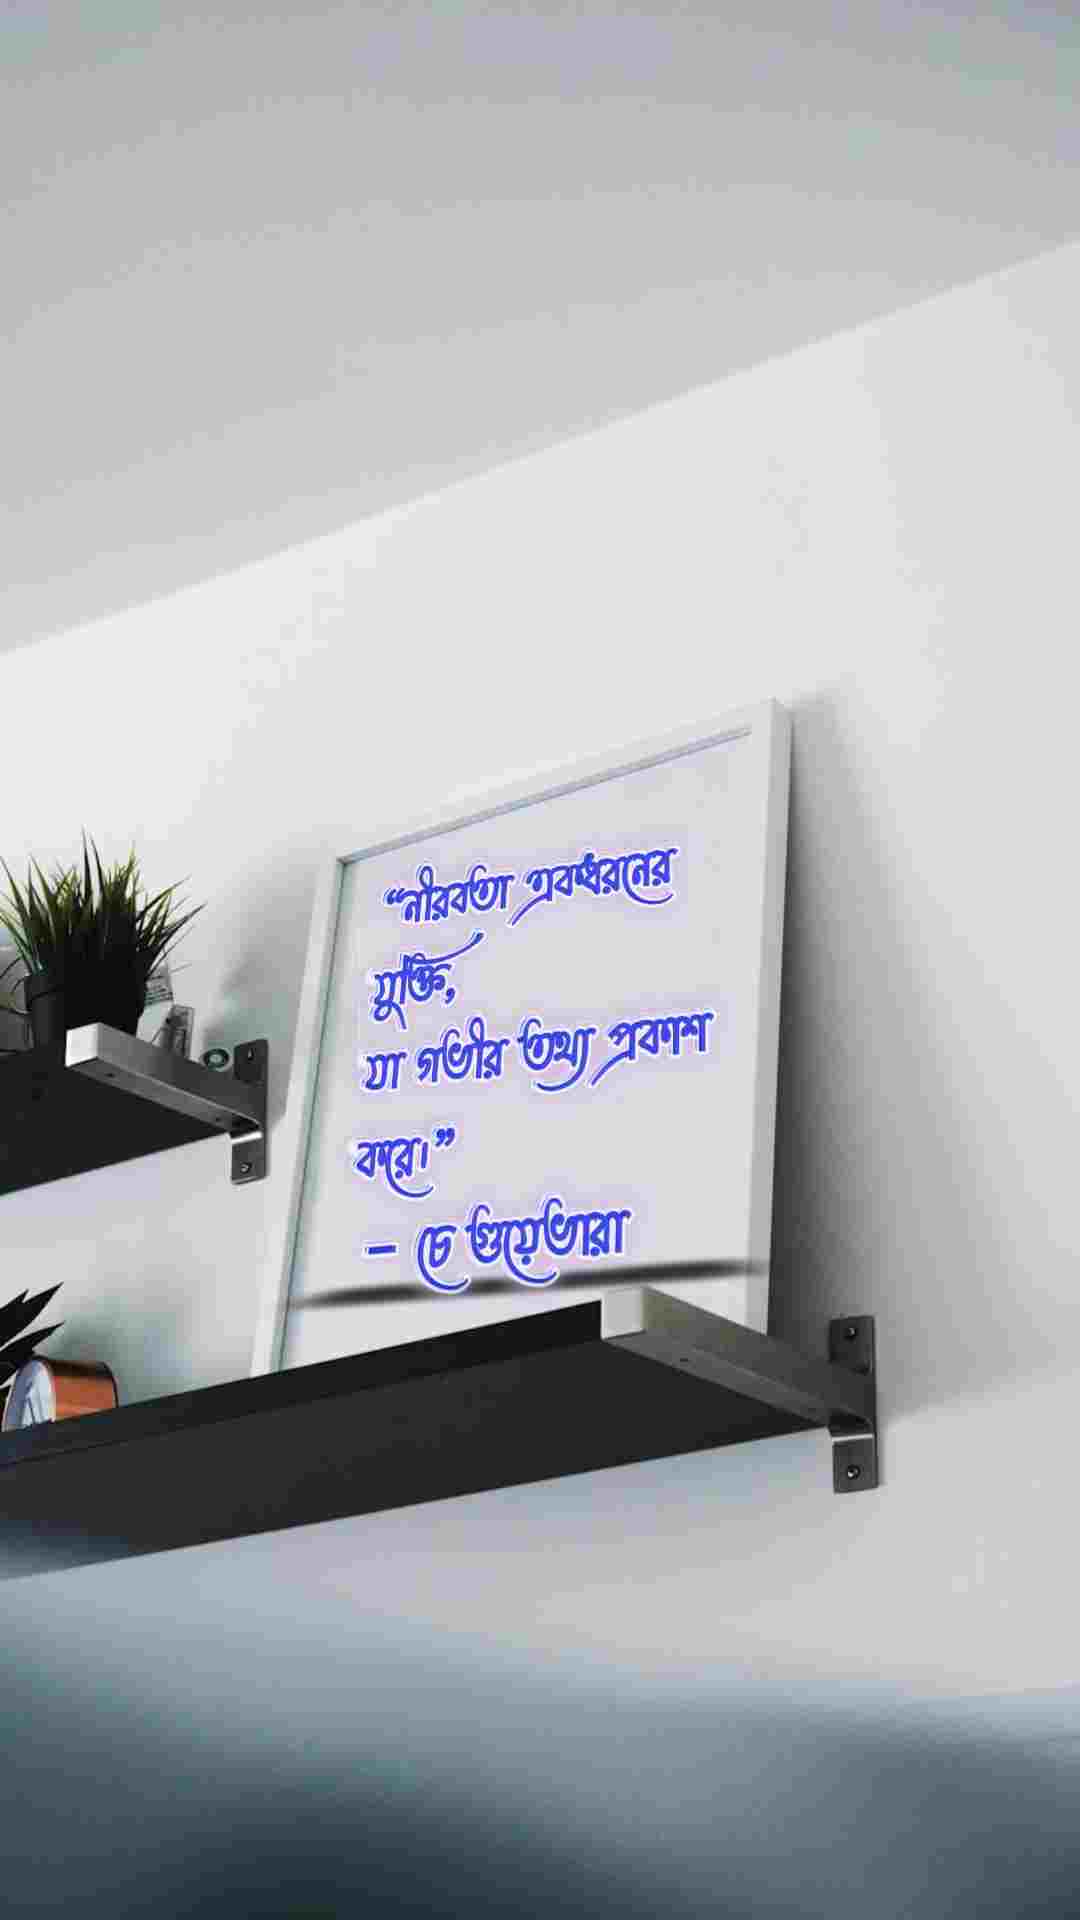 “নীরবতা একধরনের
যুক্তি,
যা গভীর তথ্য প্রকাশ
করে।”
– চে গুয়েভারা